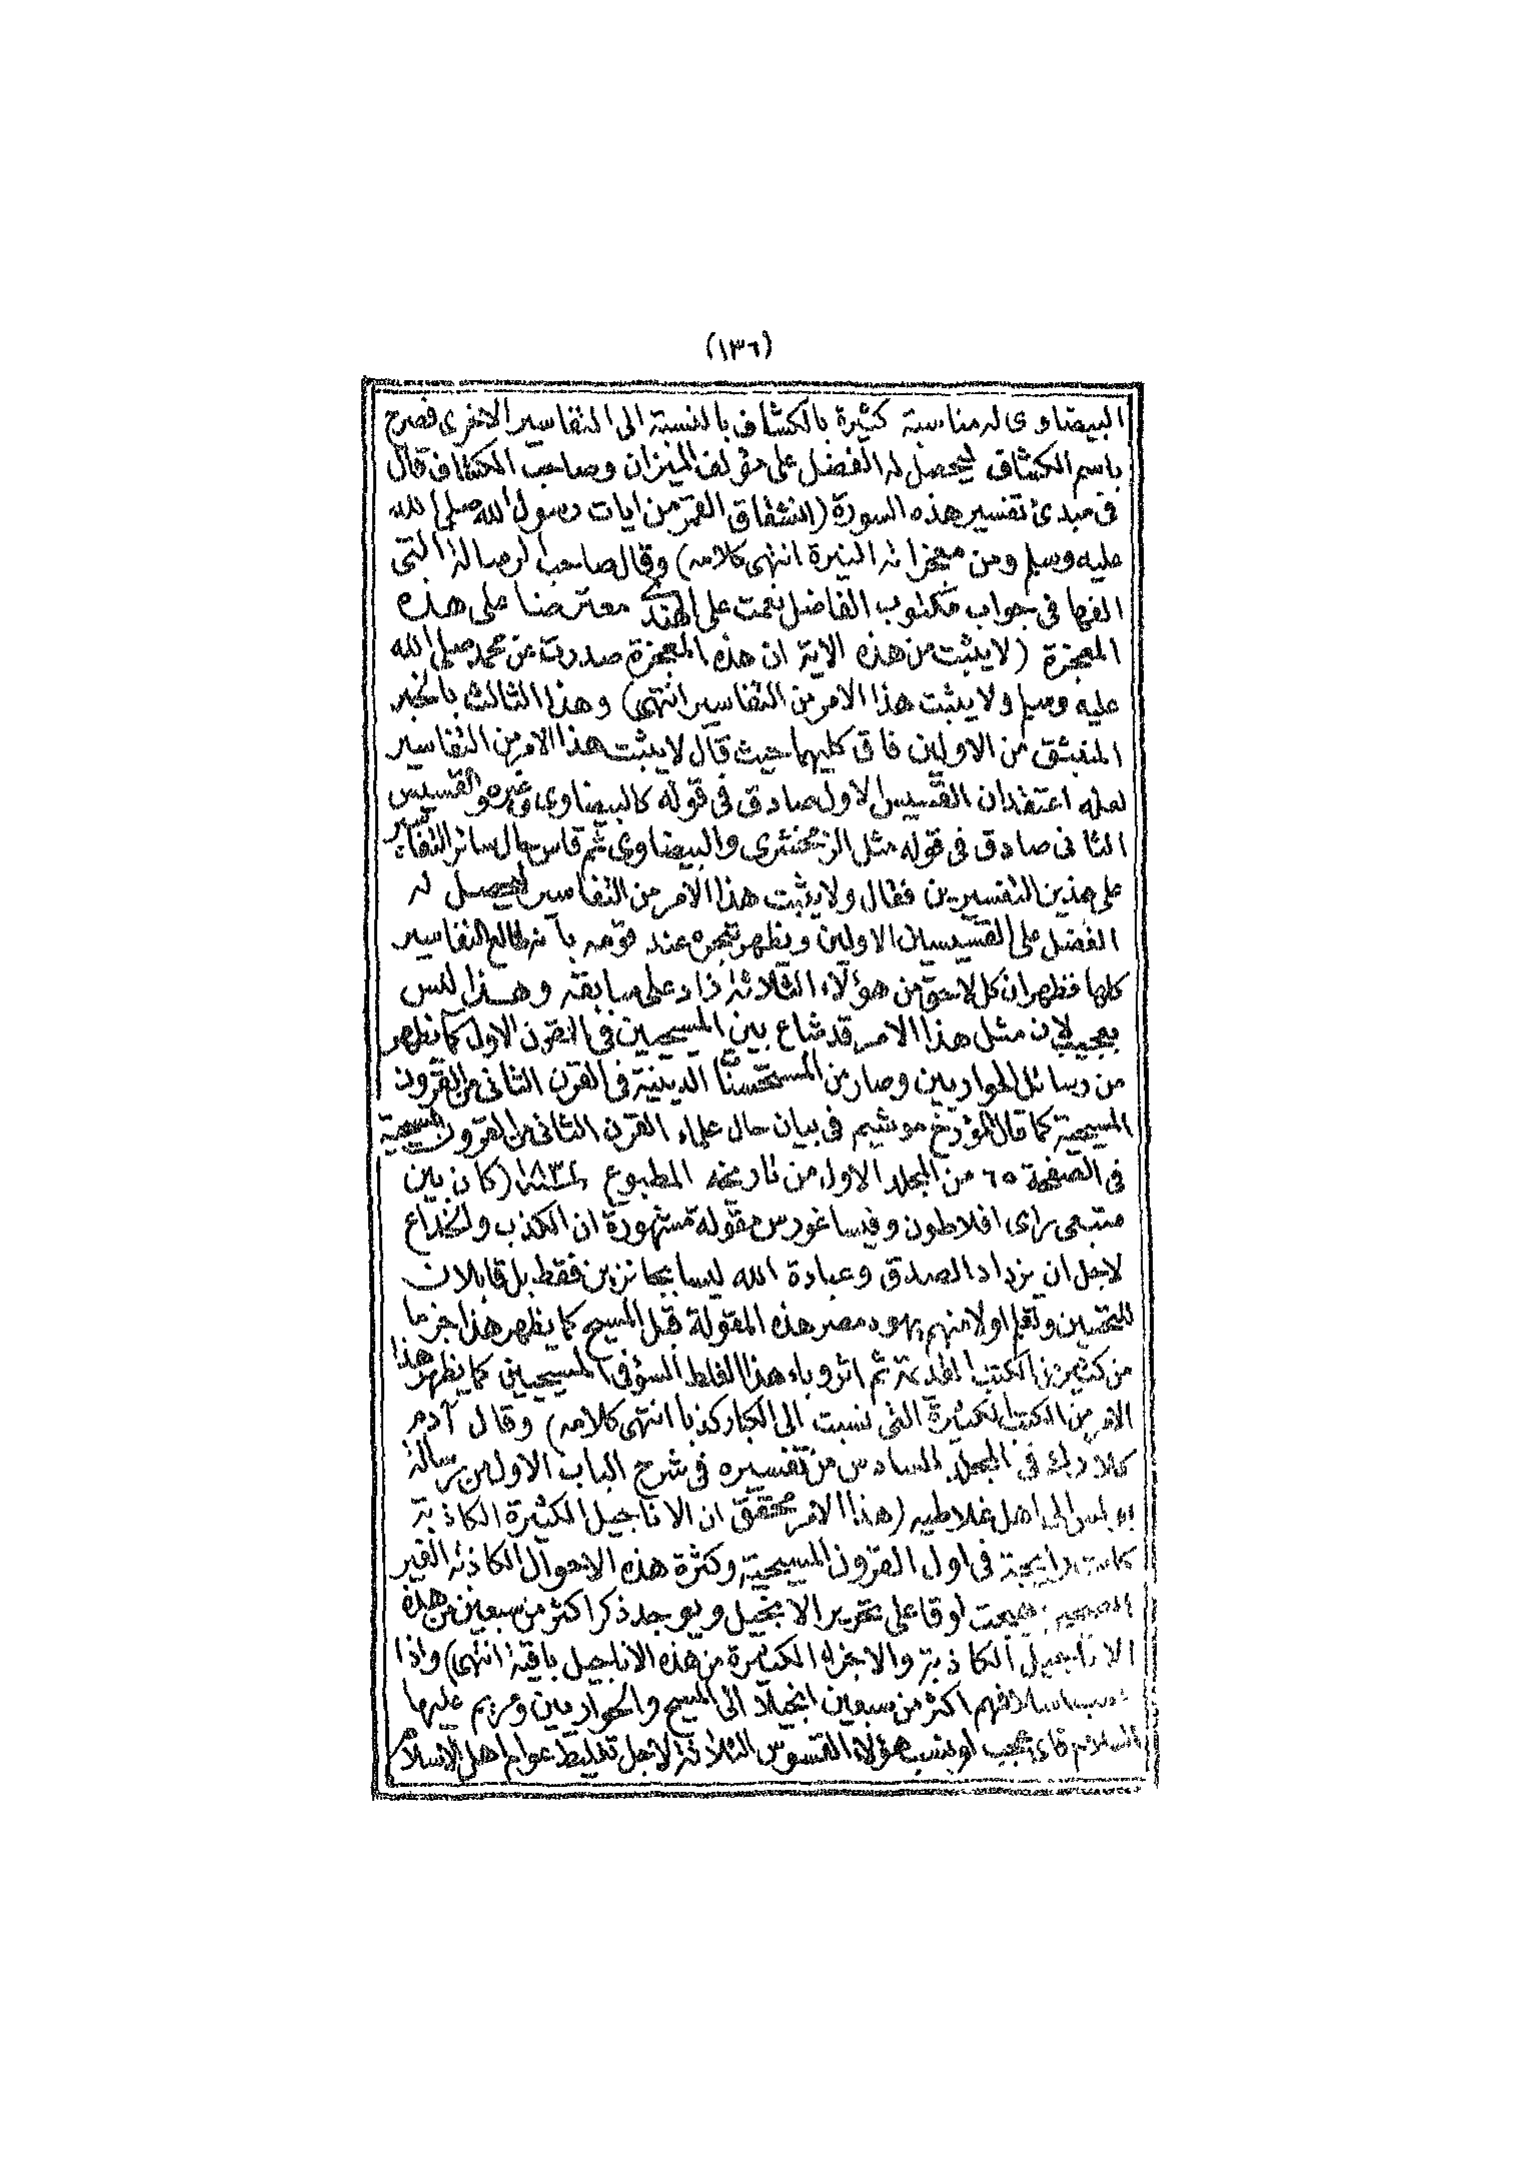 (١٣٦)
البيضاوى له مناسبة كثيرة بالكشاف بالنسبة الى التفاسير الاخرى فصرح
باسم الكشاف ليحصل له الفضل على مؤلف الميزان وصاحب الكشاف قال
فى مبدئ تفسير هذه السورة (انشقاق القمر من ايات رسول الله صلى الله
عليه وسلم ومن معجزاته النيرة انتهى كلامه) وقال صاحب الرسالة التى
الفها فى جواب مكتوب الفاضل نعمت على الهندى معترضا على هذه
المعجزة (لا يثبت من هذه الاية ان هذه المعجزة صدرت عن محمد صلى الله
عليه وسلم ولا يثبت هذا الامر من التفاسير انتهى) وهذا الثالث بالخير
المنبثق من الاولين فاق كليهما حيث قال لا يثبت هذا الامر من التفاسير
لعله اعتقد ان القسيس الاول صادق فى قوله كالبيضاوى وغيره والقسيس
الثانى صادق فى قوله مثل الزمخشرى والبيضاوى ثم قاس حال سائر التفاسير
على هذين التفسيرين فقال ولا يثبت هذا الامر من التفاسير ليحصل له
الفضل على القسيسين الاولين ويظهر تبحره عند قومه بأنه طالع التفاسير
كلها فظهر ان كل لاحق من هؤلاء الثلاثة زاد على سابقه وهذا ليس
بعجيب لان مثل هذا الامر قد شاع بين المسيحيين فى القرن الاول كما يظهر
من رسائل الحواريين وصار من المستحسنات الدينية فى القرن الثانى من القرون
المسيحية كما قال المؤرخ موشيم فى بيان حال علماء القرن الثانى من القرون المسيحية
فى الصفحة ٦٥ من المجلد الاول من تاريخه المطبوع ١٨٣٢ (كان بين
متبعى راى افلاطون وفيساغورس مقولة مشهورة ان الكذب والخداع
لاجل ان يزداد الصدق وعبادة الله ليسا بجائزين فقط بل قابلان
للتحسين وتعلم اولا منهم يهود مصر هذه المقولة قبل المسيح كما يظهر هذا جزما
من كثير من الكتب القديمة ثم اثر وباء هذا الغلط السؤ فى المسيحيين كما يظهر هذا
الامر من الكتب الكثيرة التى نسبت الى الكبار كذبا انتهى كلامه) وقال آدم
كلارك فى المجلد السادس من تفسيره فى شرح الباب الاول من رسالة
بولس الى اهل غلاطيه (هذا الامر محقق ان الاناجيل الكثيرة الكاذبة
كانت رايجة فى اول القرون المسيحية وكثرة هذه الاحوال الكاذبة الغير
الصحيحة هيجت لوقا على تحرير الانجيل ويوجد ذكر اكثر من سبعين من هذه
الاناجيل الكاذبة والاجزاء الكثيرة من هذه الاناجيل باقية انتهى) واذا
نسب اسلافهم اكثر من سبعين انجيلا الى المسيح والحواريين ومريم عليها
السلام فاى عجب لو ينسب هؤلاء القسوس الثلاثة لاجل تغليط عوام اهل الاسلام